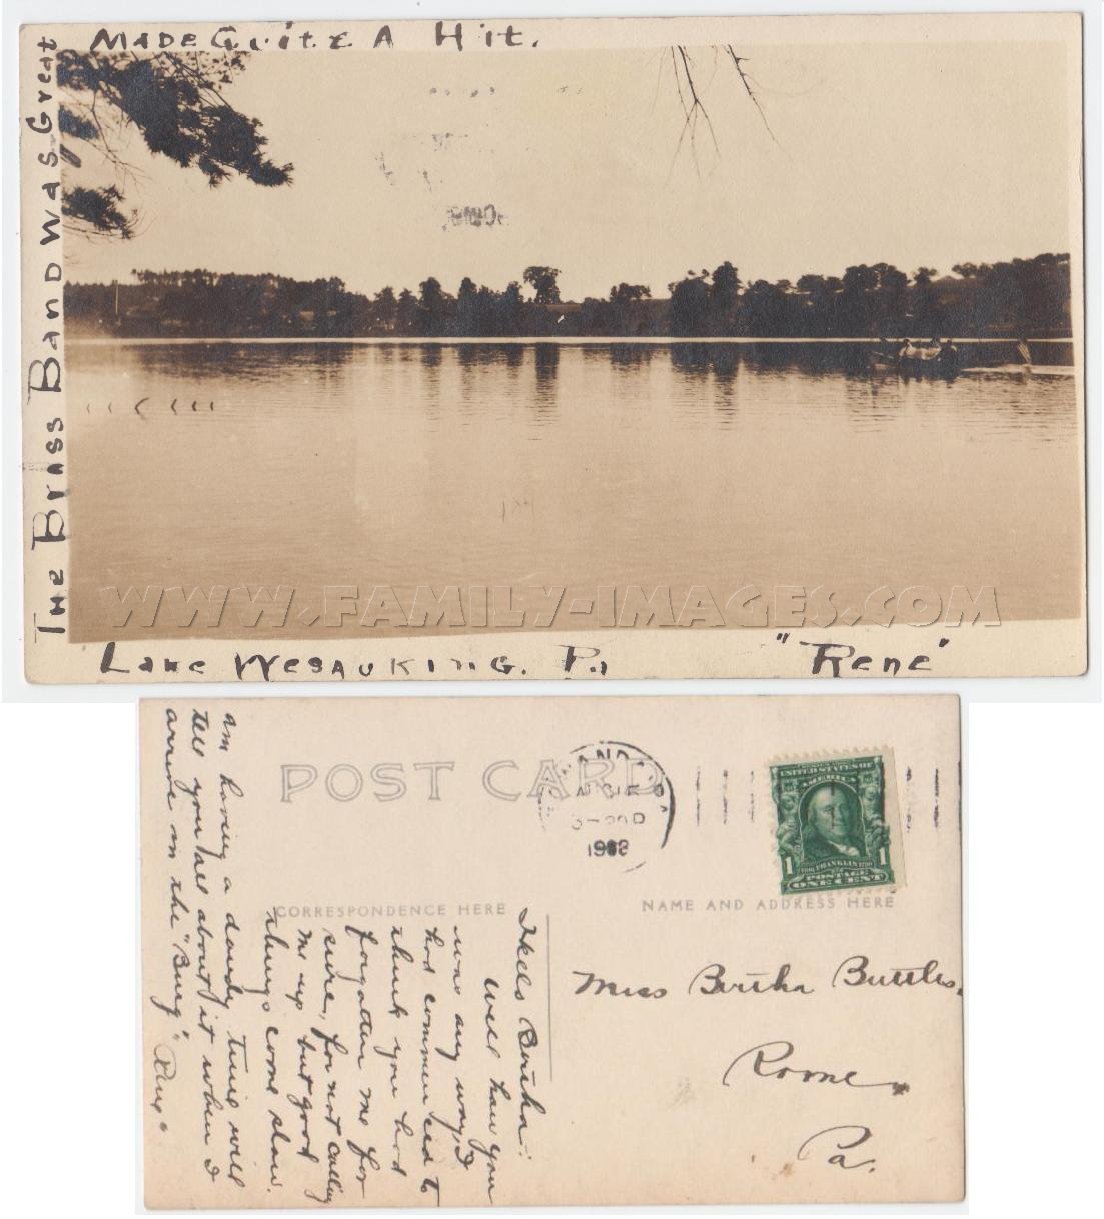 MADE Quite A Hit.
THE BRASS BAND WAS Great
WWW.FAMILY-IMAGES.COM
LAKE WESAUKING. Pa
"Rene"
POST CARD
3-30 P
1908
UNITED STATES OF
AMERICA
1 FRANKLIN 1
POSTAGE
ONE CENT
CORRESPONDENCE HERE
NAME AND ADDRESS HERE
Miss Bertha Buttles.
Rome
Pa.
Hello Bertha:
Well how you
was any way, I
had commenced to
think you had
forgotten me for
sure, for not calling
me up but good
things come slow.
am having a dandy time will
tell you all about it when I
arrive in the "Burg"
Rene